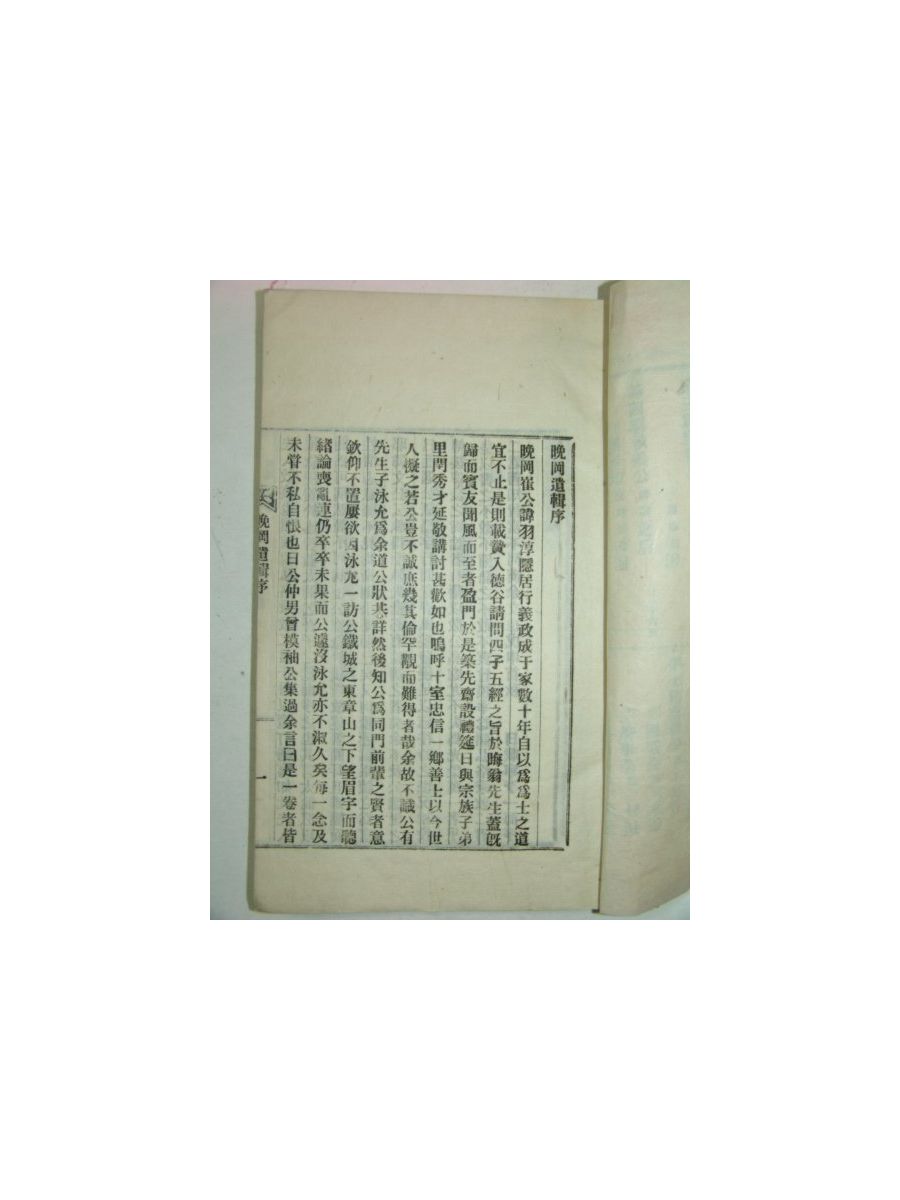 晩岡遺輯序
晩岡崔公諱羽淳隱居行義政成于家數十年自以爲爲士之道
宜不止是則載贄入德谷請問四子五經之旨於晦翁先生蓋旣
歸而賓友聞風而至者盈門於是築先齋設禮筵日與宗族子弟
里閈秀才延敬講討甚歡如也嗚呼十室忠信一鄕善士以今世
人擬之若公豈不誠庶幾其倫罕觀而難得者哉余故不識公有
先生子泳允爲余道公狀甚詳然後知公爲同門前輩之賢者意
欽仰不置屢欲因泳允一訪公鐵城之東章山之下望眉宇而聽
緖論喪亂連仍卒卒未果而公遽沒泳允亦不淑久矣每一念及
未甞不私自恨也日公仲男曾模袖公集過余言曰是一卷者皆
晩岡遺輯序
一